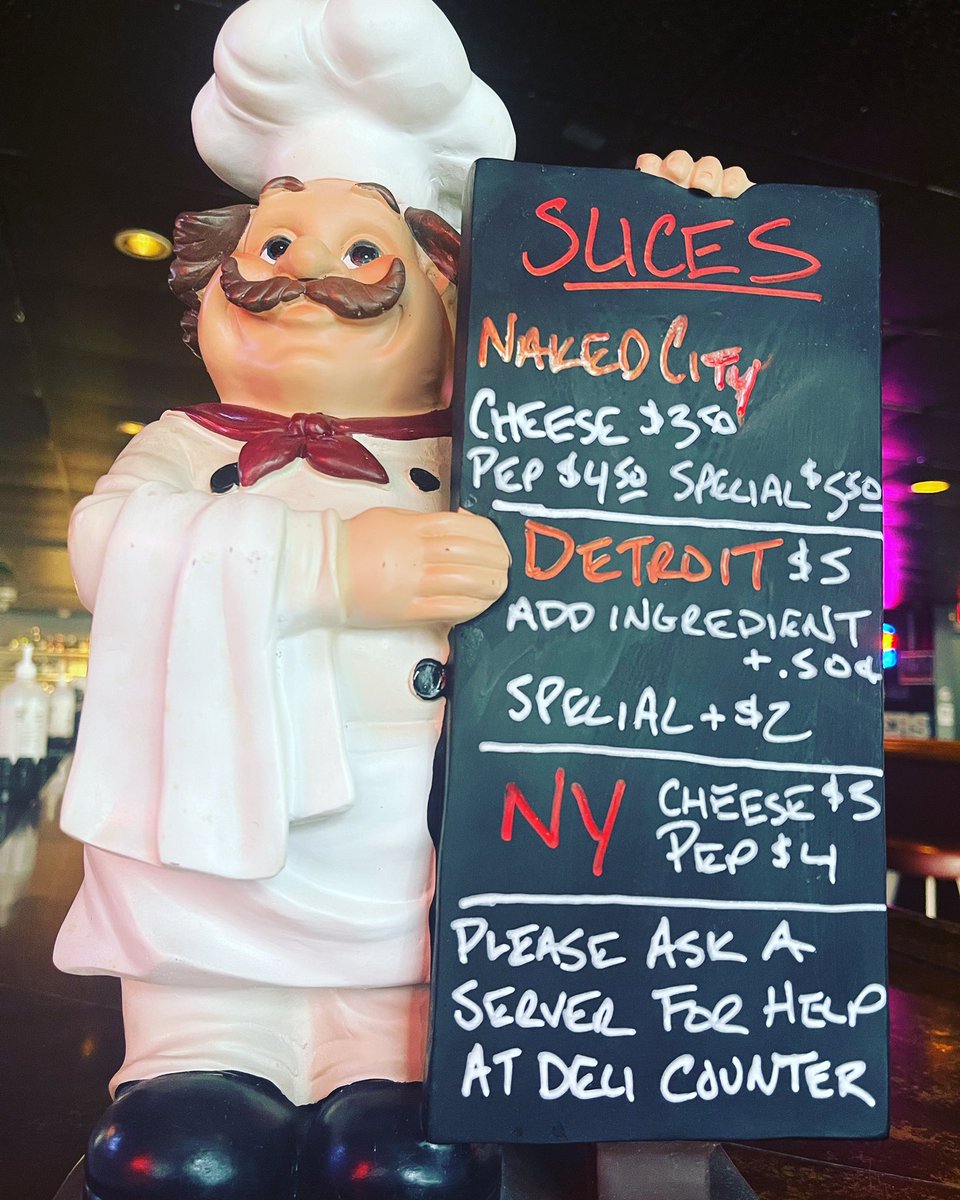 SLICES
NAKED CITY
CHEESE $3.50
PEP $4.50 SPECIAL $5.50
DETROIT $5
ADD INGREDIENT
+ .50¢
SPECIAL + $2
NY CHEESE $3
PEP $4
PLEASE ASK A
SERVER FOR HELP
AT DELI COUNTER